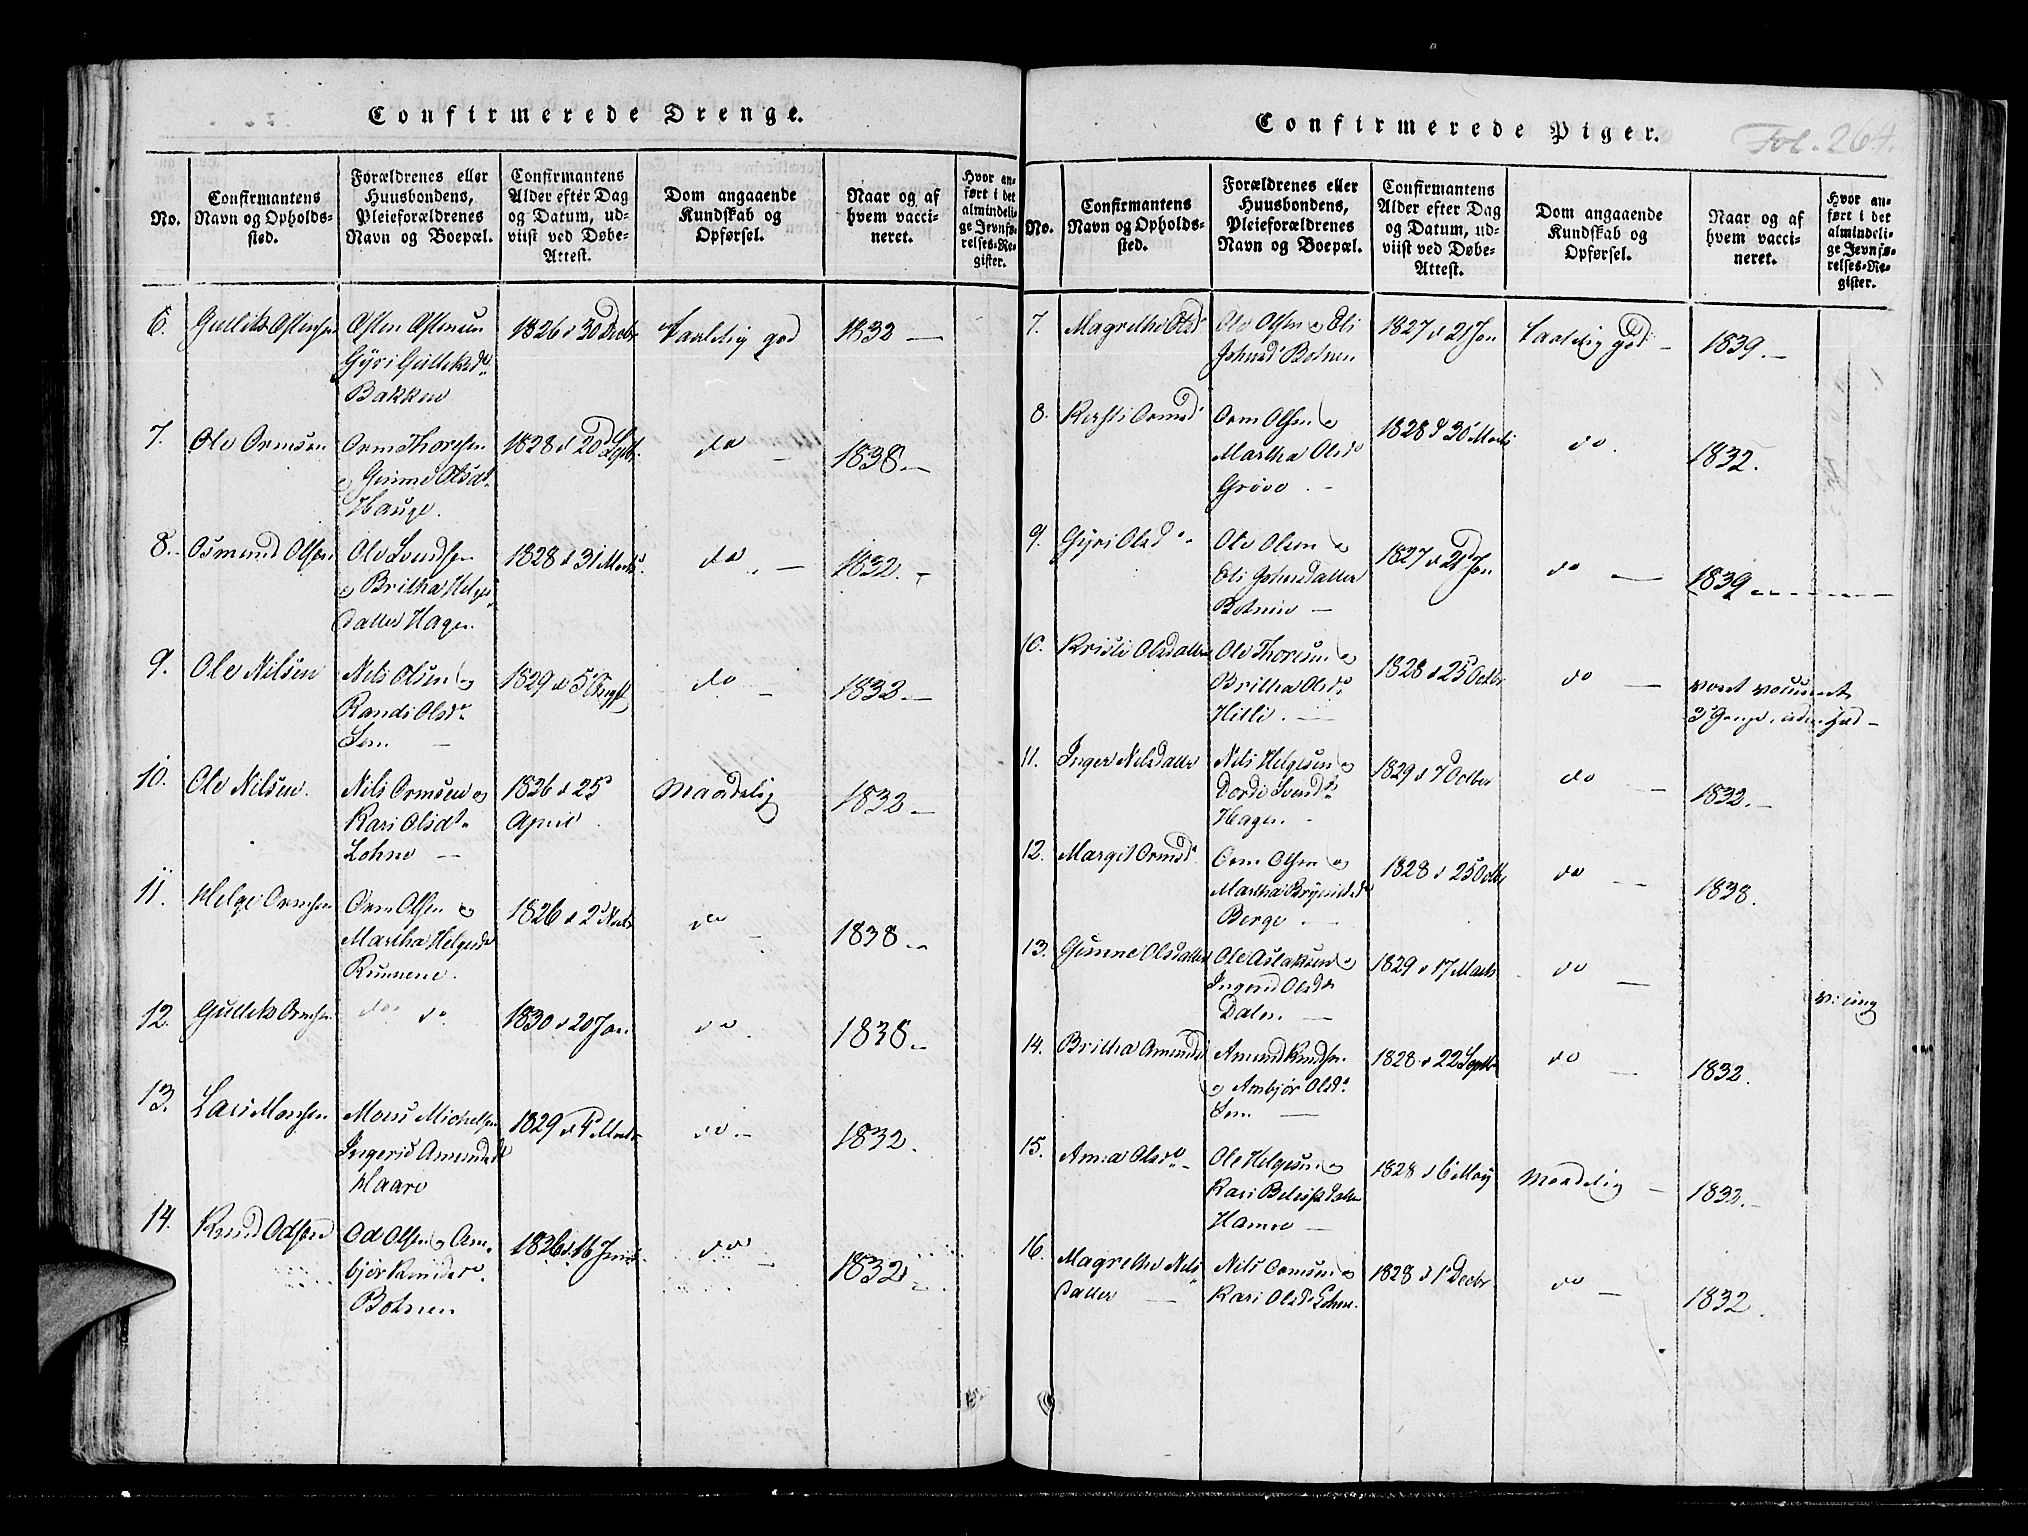 Confirmerede Drenge.
No.
Confirmantens
Navn og Opholds-
sted.
Forældrenes eller
Huusbondens,
Pleieforældrenes
Navn og Boepæl.
Confirmantens
Alder efter Dag
og Datum, ud-
viist ved Døbe-
Attest.
Dom angaaende
Kundskab og
Opførsel.
Naar og af
hvem vacci-
neret.
Hvor an-
ført i det
almindeli-
ge Jevnfø-
relses-Re-
gister.
6.
Gullik Østensen
Østen Østensen
Gyri Gulleksd.
Bakken
1826 d 30 Decbr
Taalelig god
1832 —
7.
Ole Ormsen
Orm Thorsen
Gunne Olsdt.
Hauge.
1828 d 20 Septbr.
do
1838 —
8.
Osmund Olsen
Ole Svendsen
Britha Helges
datter Hagen.
1828 d 31 Marts
do
1832. —
9.
Ole Nilsen
Nils Olsen og
Randi Olsd.
Sem —
1829 d 5 Augst
do —
1832 —
10.
Ole Nilsen.
Nils Ormsen og
Kari Olsdt.
Lohne —
1826 d 25
April
Maadelig
1832 —
11.
Helge Ormsen
Orm Olsen og
Martha Helgesd.
Runnene.
1826 d 2
do —
1838 —
12.
Gullik Ormsen
do. do.
1830 d 20 Jan.
do.
1838 —
13.
Lars Monsen
Mons Michelsen
Ingerid Amundsd.
Haare
1829 d 4 Marts
do —
1832.
14.
Knud Odsen
Od Olsen og Am-
bjør Knudsd.
Botnen
1826 d 16 Juni
do —
1832
Confirmerede Piger.
Fol. 264.
No.
Confirmantens
Navn og Opholds-
sted.
Forældrenes eller
Huusbondens,
Pleieforældrenes
Navn og Boepæl.
Confirmantens
Alder efter Dag
og Datum, ud-
viist ved Døbe-
Attest.
Dom angaaende
Kundskab og
Opførsel.
Naar og af
hvem vacci-
neret.
Hvor an-
ført i det
almindeli-
ge Jevnfø-
relses-Re-
gister.
7.
Magrethe Olsd
Ole Olsen og Eli
Johnsd Botnen
1827 d 21 Jan
Taalelig god —
1839. —
8.
Kirsti Ormsd
Orm Olsen og
Martha Olsd
Grøve. —
1828 d 30 Marts
do.
1832.
9.
Gyri Olsd.
Ole Olsen og
Eli Johnsdatter
Botnen —
1827 d 21 Jan
do —
1839
10.
Kristi Olsdatter
Ole Thoresen og
Britha Olsd.
Hilli. —
1828 d 25 Octbr
do —
været vaccineret
3 Gange, uden
11.
Inger Nilsdatter
Nils Helgesen og
Dordi Svendsd.
Hagen.
1829 d 7 Octber
do —
1832. —
12.
Margit Ormsd.
Orm Olsen og
Martha Brynildsd
Berge. —
1828 d 25 Octbr
do —
1838.
13.
Gunne Olsdatter
Ole Aslaksen og
Ingerid Olsd
Dalen. —
1829 d 17 Marts
do —
14.
Britha Amundsd
Amund Knudsen
og Ambjør Olsd.
Sem —
1828 d 22 Septbr
do —
1832.
15.
Anna Olsd.
Ole Helgesen og
Kari datter
Hamre —
1828 d 6 May
Maadelig —
1832. —
16.
Magrethe Nils
datter —
Nils Ormsen og
Kari Olsd. Lohne.
1828 d 1 Decbr
do —
1832.